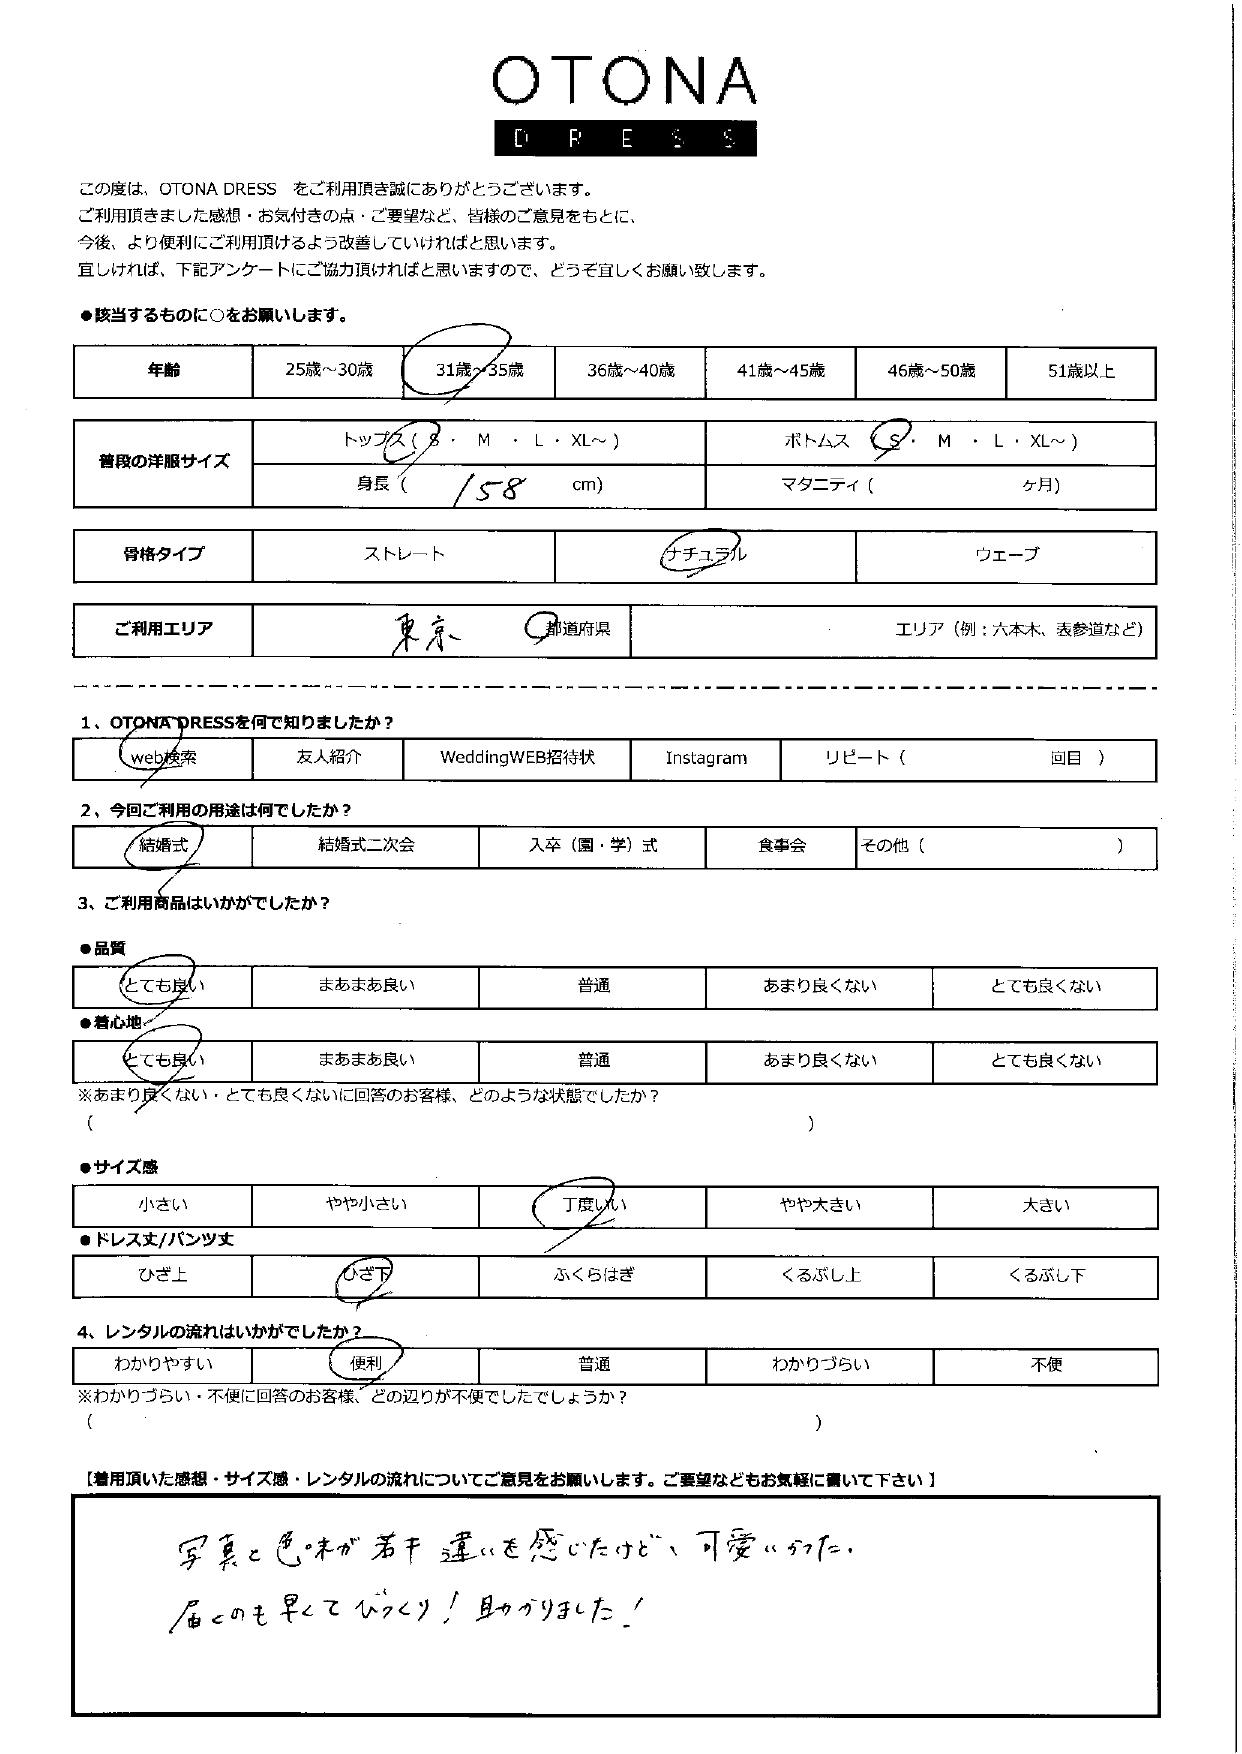 OTONA
DRESS
この度は、OTONA DRESS　をご利用頂き誠にありがとうございます。
ご利用頂きました感想・お気付きの点・ご要望など、皆様のご意見をもとに、
今後、より便利にご利用頂けるよう改善していければと思います。
宜しければ、下記アンケートにご協力頂ければと思いますので、どうぞ宜しくお願い致します。
●該当するものに○をお願いします。
年齢 25歳～30歳 31歳～35歳 36歳～40歳 41歳～45歳 46歳～50歳 51歳以上
普段の洋服サイズ トップス（ S ・ M ・ L ・ XL～ ） ボトムス （ S ・ M ・ L ・ XL～ ）
身長（ 158 cm） マタニティ（ ケ月）
骨格タイプ ストレート ナチュラル ウェーブ
ご利用エリア 東京 都道府県 エリア（例：六本木、表参道など）
1、OTONA DRESSを何で知りましたか？
web検索 友人紹介 WeddingWEB招待状 Instagram リピート（ 回目 ）
2、今回ご利用の用途は何でしたか？
結婚式 結婚式二次会 入卒（園・学）式 食事会 その他（ ）
3、ご利用商品はいかがでしたか？
●品質
とても良い まあまあ良い 普通 あまり良くない とても良くない
●着心地
とても良い まあまあ良い 普通 あまり良くない とても良くない
※あまり良くない・とても良くないに回答のお客様、どのような状態でしたか？
（ ）
●サイズ感
小さい やや小さい 丁度いい やや大きい 大きい
●ドレス丈/パンツ丈
ひざ上 ひざ下 ふくらはぎ くるぶし上 くるぶし下
4、レンタルの流れはいかがでしたか？
わかりやすい 便利 普通 わかりづらい 不便
※わかりづらい・不便に回答のお客様、どの辺りが不便でしたでしょうか？
（ ）
【着用頂いた感想・サイズ感・レンタルの流れについてご意見をお願いします。ご要望などもお気軽に書いて下さい】
写真と色味が若干違いを感じたけど、可愛いかった。
届くのも早くてびっくり！助かりました！